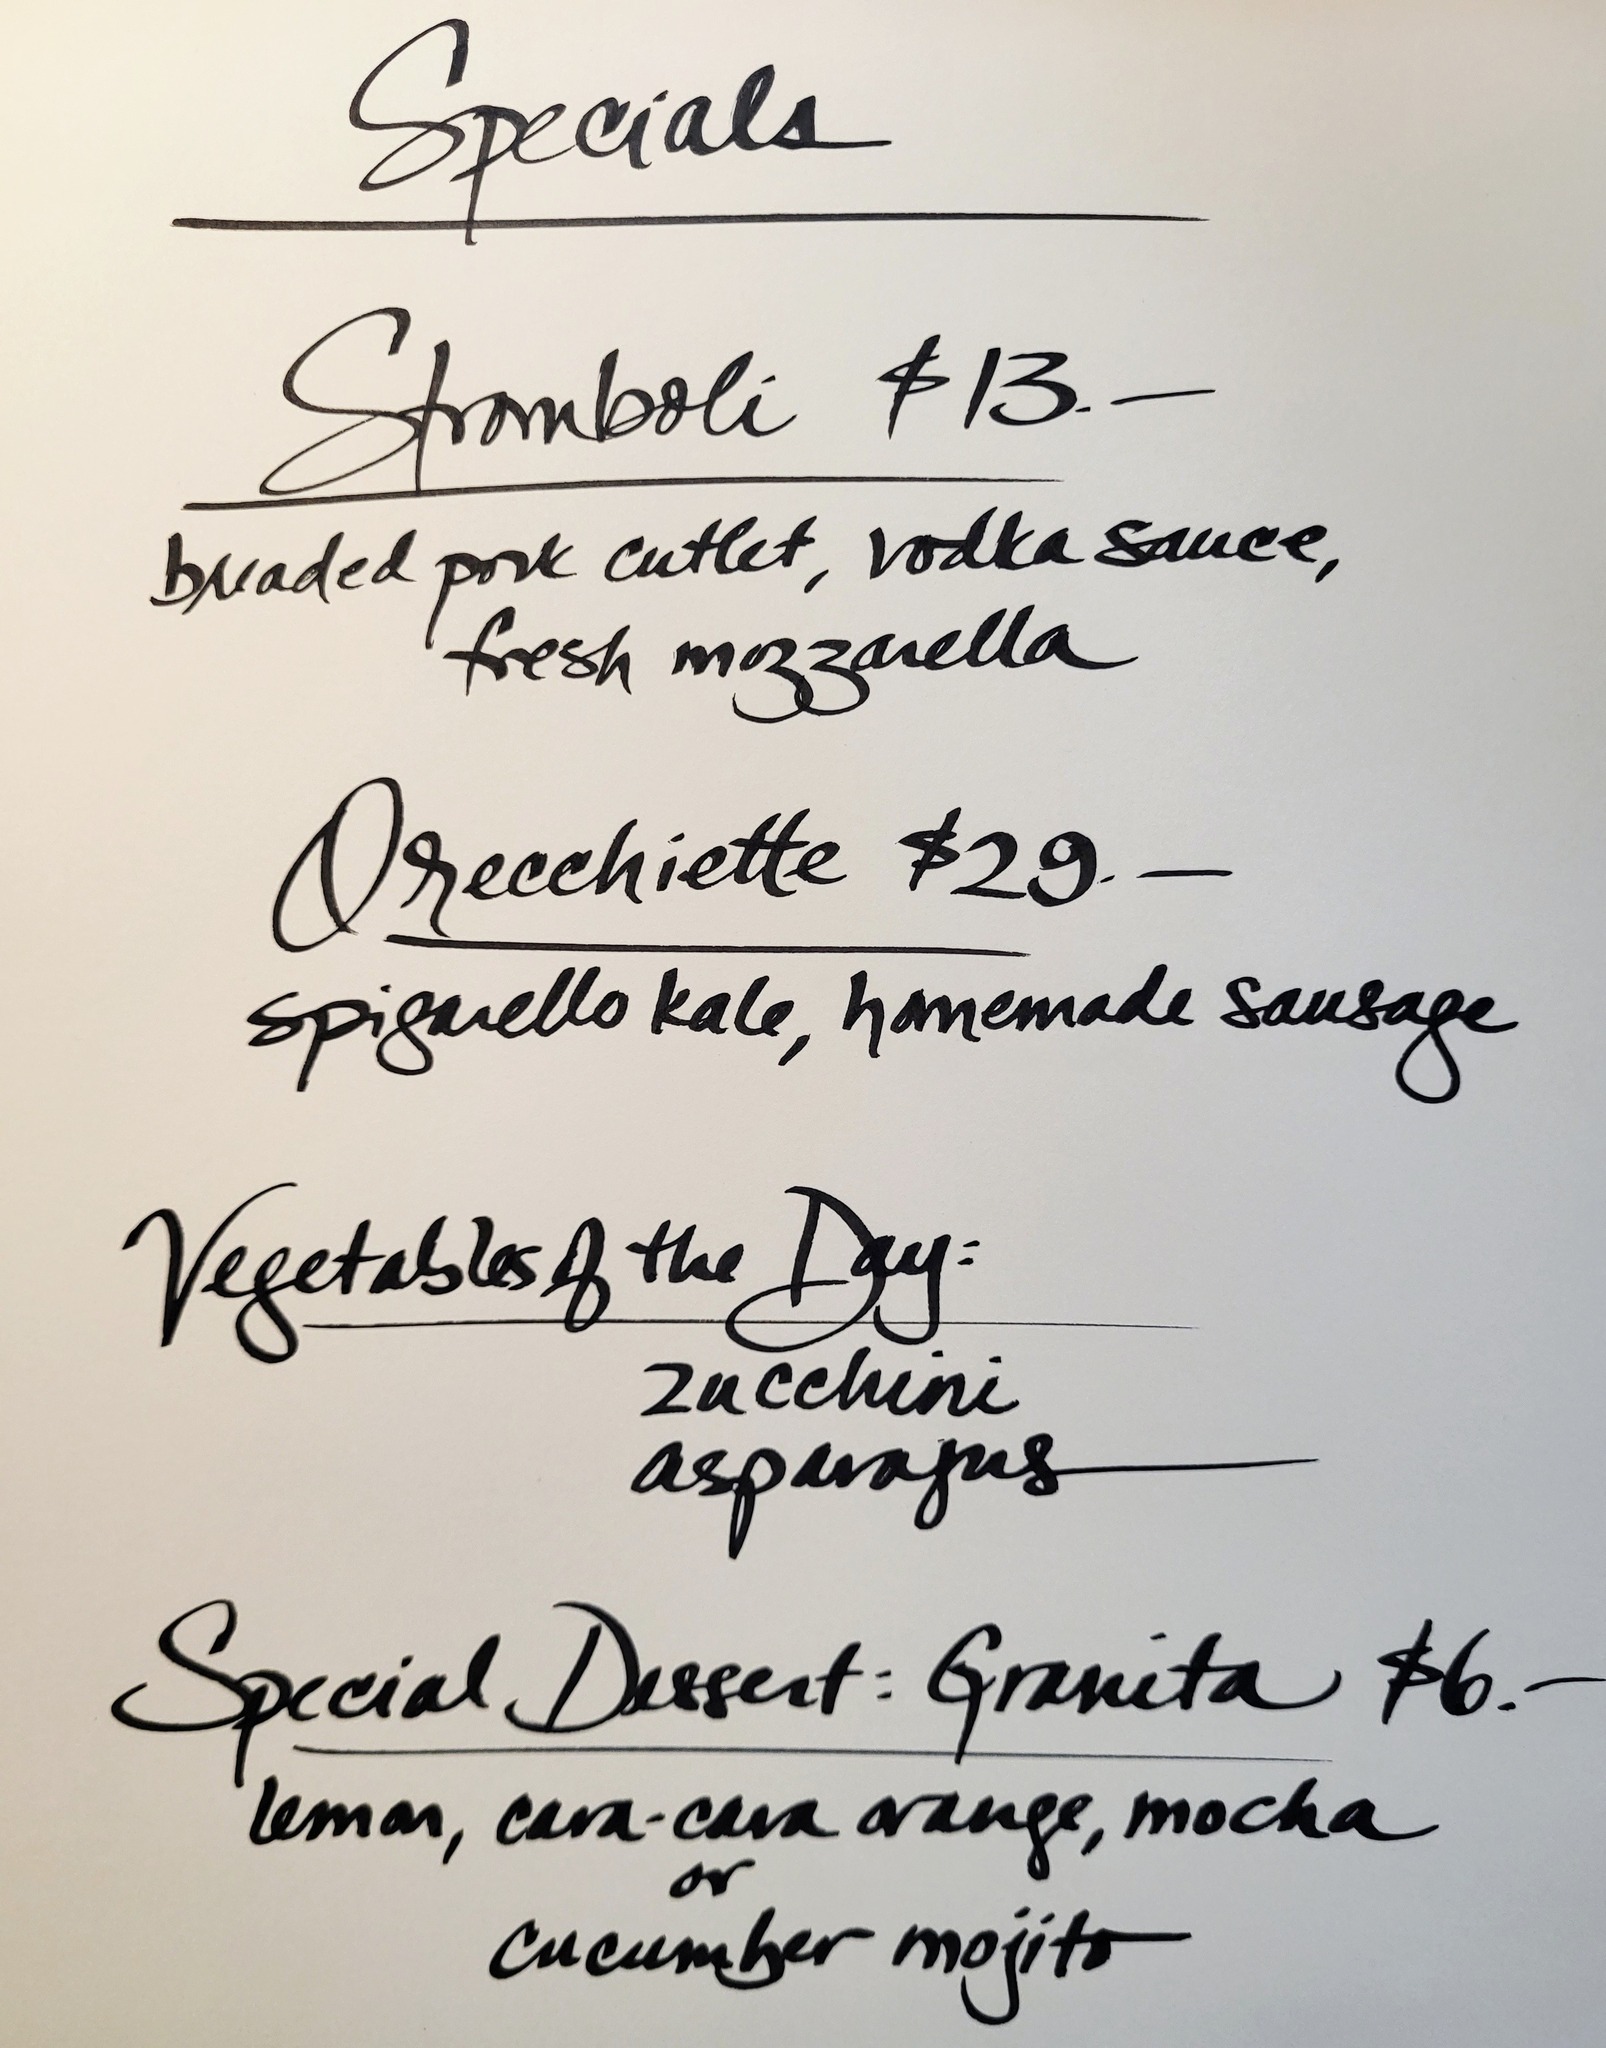 Specials
Stromboli $13.—
breaded pork cutlet, vodka sauce,
fresh mozzarella
Orecchiette $29.—
spigarello kale, homemade sausage
Vegetables of the Day:
zucchini
asparagus
Special Dessert: Granita $6.—
lemon, cara-cara orange, mocha
or
cucumber mojito